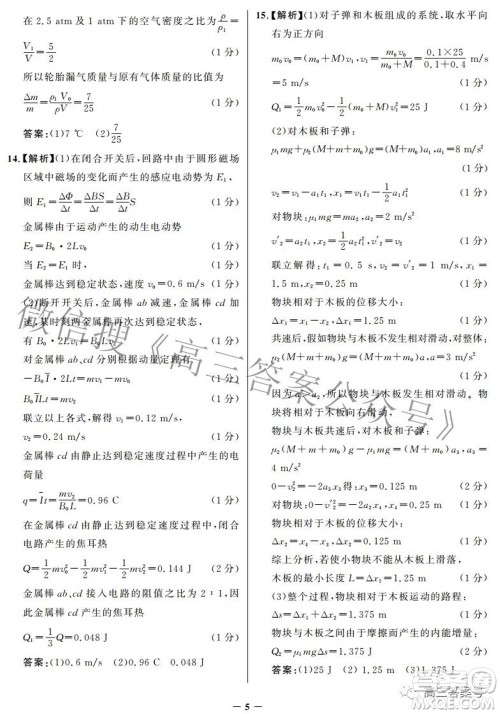 在 2.5 atm 及 1 ℃下的空气密度之比为 ρ/ρ₁ =
V₁/V = 5/2 (1分)
所以轮胎漏气质量与原有气体质量的比值为
Δm/m = ρ₁V₀/ρV = 7/25 (1分)
答案:(1)7 ℃ (2)7/25
14.【解析】(1)在闭合开关后,回路中由于圆形磁场
区域中磁场的变化而产生的感应电动势为 E₁,
则 E₁ = ΔΦ/Δt = ΔBS/Δt = ΔB/Δt S (1分)
金属棒由于运动产生的动生电动势
E₂ = B₀·2Lv₀ (1分)
当 E₂ = E₁ 时,
金属棒达到稳定状态,速度 v₀ = 0.6 m/s (1分)
(2)断开开关后,金属棒 ab 减速,金属棒 cd 加
速,某时刻两金属棒再次达到稳定状态,
有 B₀·2Lv₁ = B₀Lv₂ (1分)
对金属棒 ab、cd 分别根据动量定理有
-B₀I·2Lt = mv₁ - mv₀ (1分)
B₀ILt = mv₂ (1分)
联立以上各式,解得 v₁ = 0.12 m/s (1分)
v₂ = 0.24 m/s (1分)
金属棒 cd 由静止达到稳定速度过程中产生的电
荷量
q = It = mv₂/B₀L = 0.96 C (1分)
在金属棒 cd 由静止达到稳定速度过程中,闭合
电路产生的焦耳热
Q = 1/2 mv₀² - 1/2 mv₁² - 1/2 mv₂² = 0.144 J (2分)
金属棒 ab、cd 接入电路的阻值之比为 2∶1,因此
cd 产生的焦耳热
Q₁ = 1/3 Q = 0.048 J (1分)
答案:(1)0.6 m/s (2)0.96 C 0.048 J
15.【解析】(1)对子弹和木板组成的系统,取水平向
右为正方向
m₀v₀ = (m₀+M)v,v = m₀v₀/(m₀+M) = 0.1×25/(0.1+0.4) m/s
= 5 m/s (1分)
Q₁ = 1/2 m₀v₀² - 1/2 (m₀+M)v² = 25 J (1分)
(2)对木板和子弹:
μ₁mg + μ₂(M+m+m₀)g = (M+m₀)a₁,a₁ = 8 m/s²
(1分)
v₂ = v - a₁t₁,x₁ = vt₁ - 1/2 a₁t₁² (1分)
对物块:μ₁mg = ma₂,a₂ = 2 m/s² (1分)
v′₂ = a₂t₁,x₂ = 1/2 a₂t₁² (1分)
联立解得:t₁ = 0.5 s,v₂ = v′₂ = 1 m/s (2分)
物块相对于木板的位移大小:
Δx₁ = x₁ - x₂ = 1.25 m (1分)
共速后,假设物块与木板不发生相对滑动,对整体:
μ₂(M+m+m₀)g = (M+m+m₀)a,
(1分)
因为 a>a₂,所以物块与木板发生相对滑动。物
块将相对于木板向右滑动。共速后,对木板和子弹:
μ₂(M+m+m₀)g - μ₁mg = (M+m₀)a₃,a₃ =
4 m/s² (1分)
0 - v₂² = -2a₃x₃ 得:x₃ = 0.125 m (2分)
对物块:0 - v′₂² = -2a₂x₄,x₄ = 0.25 m (1分)
物块相对于木板的位移大小:
Δx₂ = x₄ - x₃ = 0.125 m (1分)
综上分析,若使小物块不能从木板上滑落,
木板的最小长度 L = Δx₁ = 1.25 m (1分)
(3)整个过程,物块相对于木板运动的路程:
Δs = Δx₁ + Δx₂ = 1.375 m (1分)
物块与木板之间由于摩擦而产生的内能增量:
Q₂ = μ₁mgΔs = 1.375 J (1分)
答案:(1)25 J (2)1.25 m (3)1.375 J
— 5 —
微信搜《高三答案公众号》
高三答案号